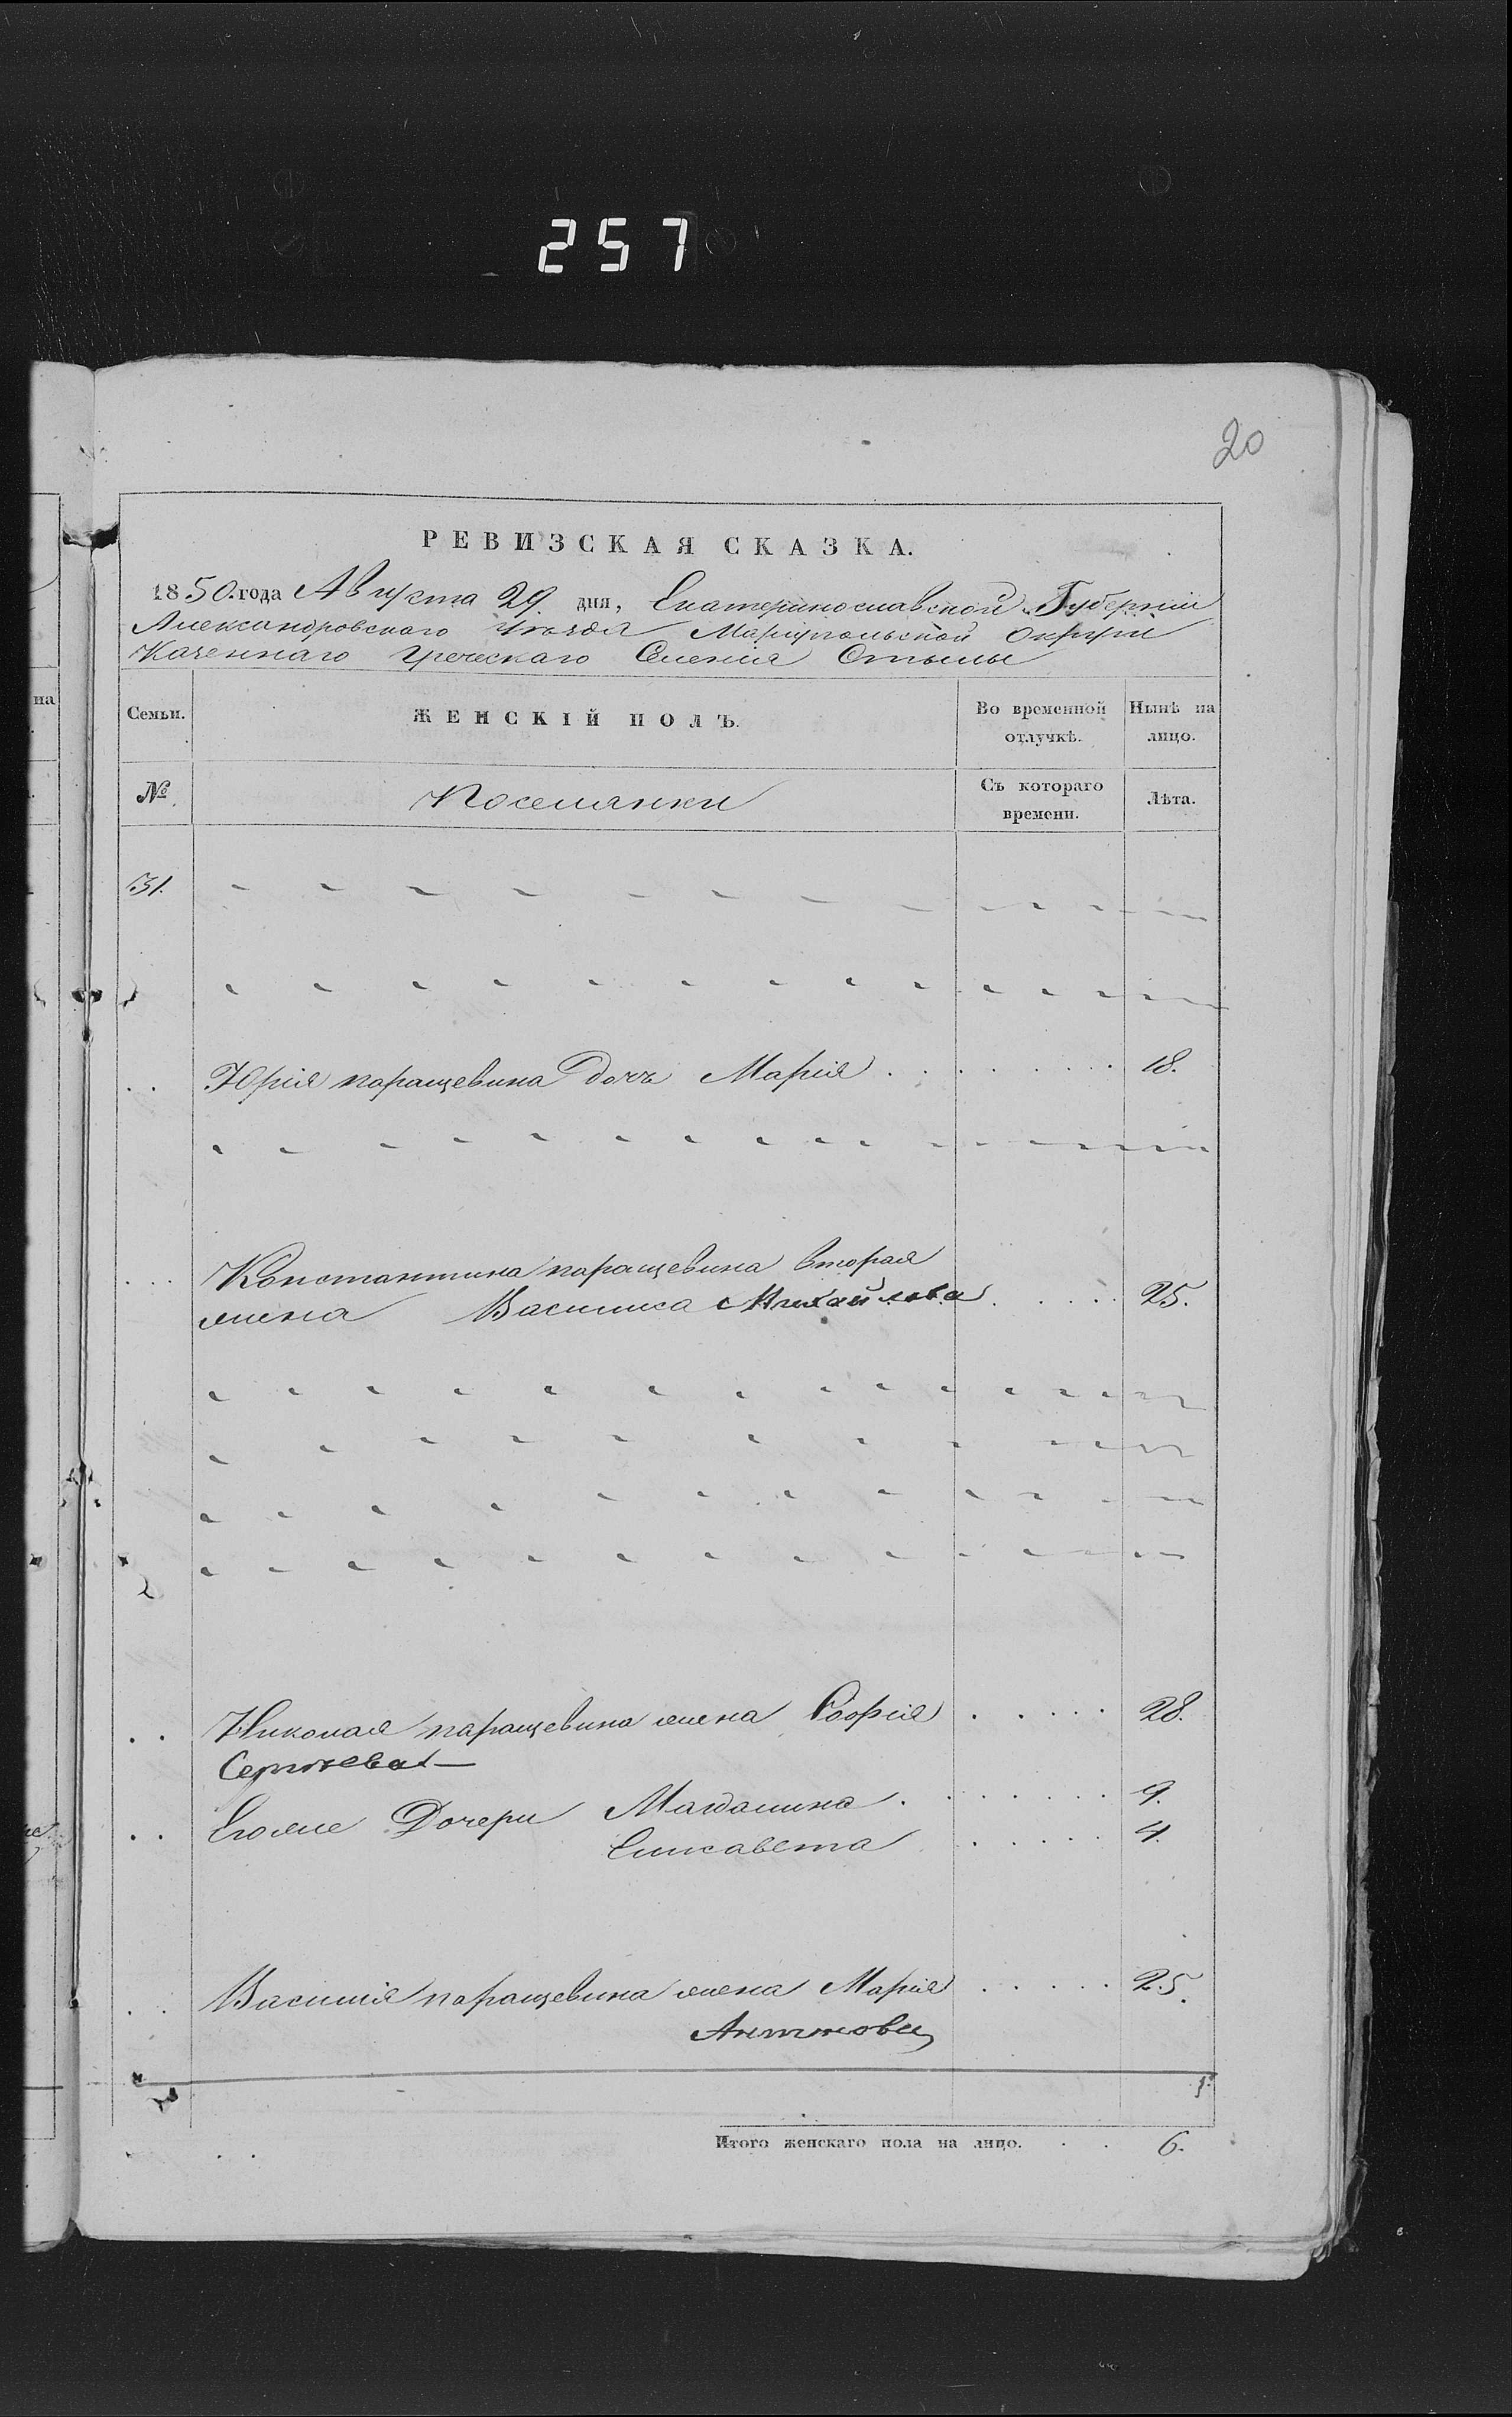 257
20
РЕВИЗСКАЯ СКАЗКА.
1850. года Августа 29. дня, Екатеринославской Губерніи
Александровского уѣзда Маріупольской округи
Казеннаго Греческаго Селенія Стылы
на
Семьи. ЖЕНСКІЙ ПОЛЪ. Во временной отлучкѣ. Нынѣ на лицо.
№. Поселянки Съ котораго времени. Лѣта.
31.
Юрія паращевина дочь Марія 18.
Константина паращевина вторая
жена Василиса Михайлова 25.
Николая паращевина жена Софія 28.
Сергѣева
Егоже Дочери Магдалина 9.
Елисавета 4.
Василія паращевина жена Марія 25.
Антонова
Итого женскаго пола на лицо. 6.